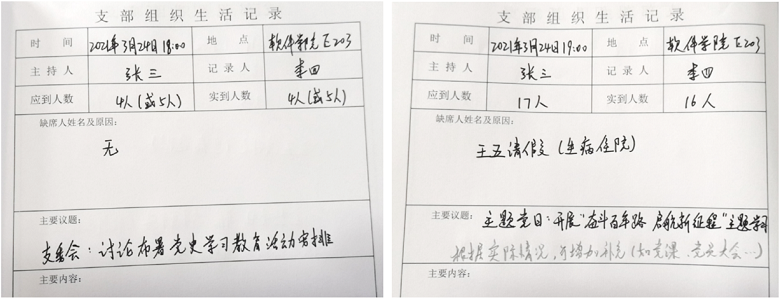 支部组织生活记录
时 间 2021年3月24日 18:00 地 点 软件学院 E203
主 持 人 张三 记 录 人 李四
应到人数 4人(或5人) 实到人数 4人(或5人)
缺席人姓名及原因:
无
主要议题:
支委会:讨论布署党史学习教育活动安排
主要内容:
支部组织生活记录
时 间 2021年3月24日 19:00 地 点 软件学院 E203
主 持 人 张三 记 录 人 李四
应到人数 17人 实到人数 16人
缺席人姓名及原因:
王五请假(生病住院)
主要议题: 主题党日:开展“奋斗百年路 启航新征程”主题学习
根据实际情况,可增加补充(如党课、党员大会…)
主要内容: